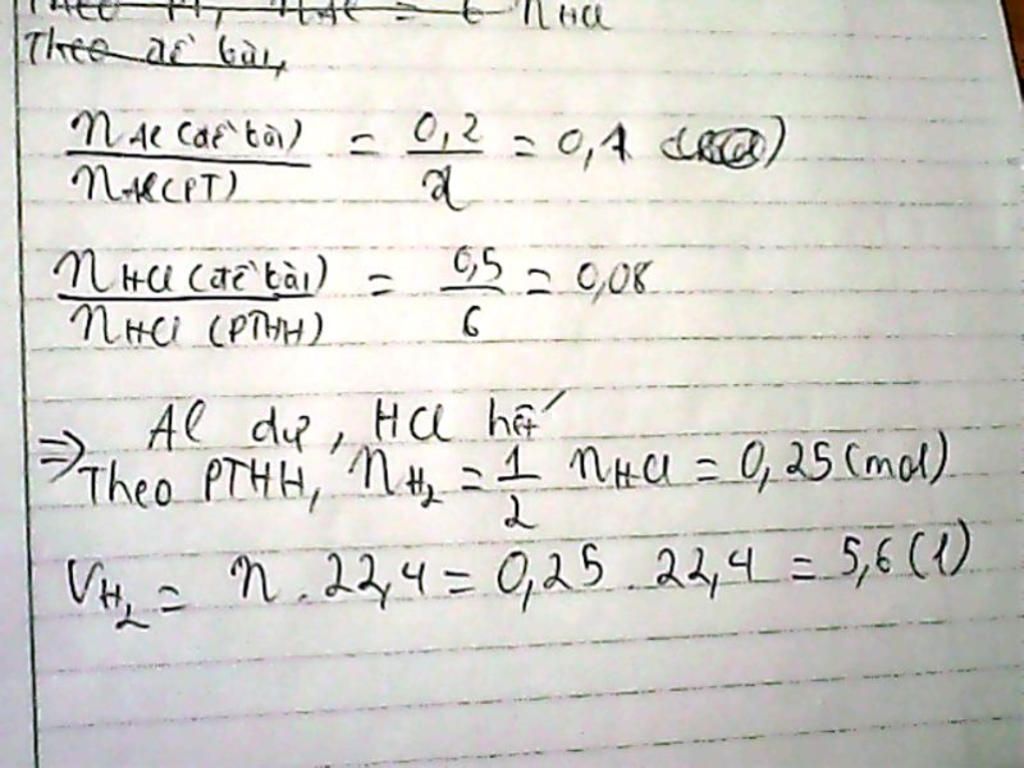 Theo PT, nAl = 6 nHCl
Theo đề bài,
nAl (đề bài) / nAl (PT) = 0,2 / 2 = 0,1
nHCl (đề bài) / nHCl (PTHH) = 0,5 / 6 = 0,08
⇒ Al dư, HCl hết
Theo PTHH, nH₂ = 1/2 nHCl = 0,25 (mol)
VH₂ = n . 22,4 = 0,25 . 22,4 = 5,6 (l)